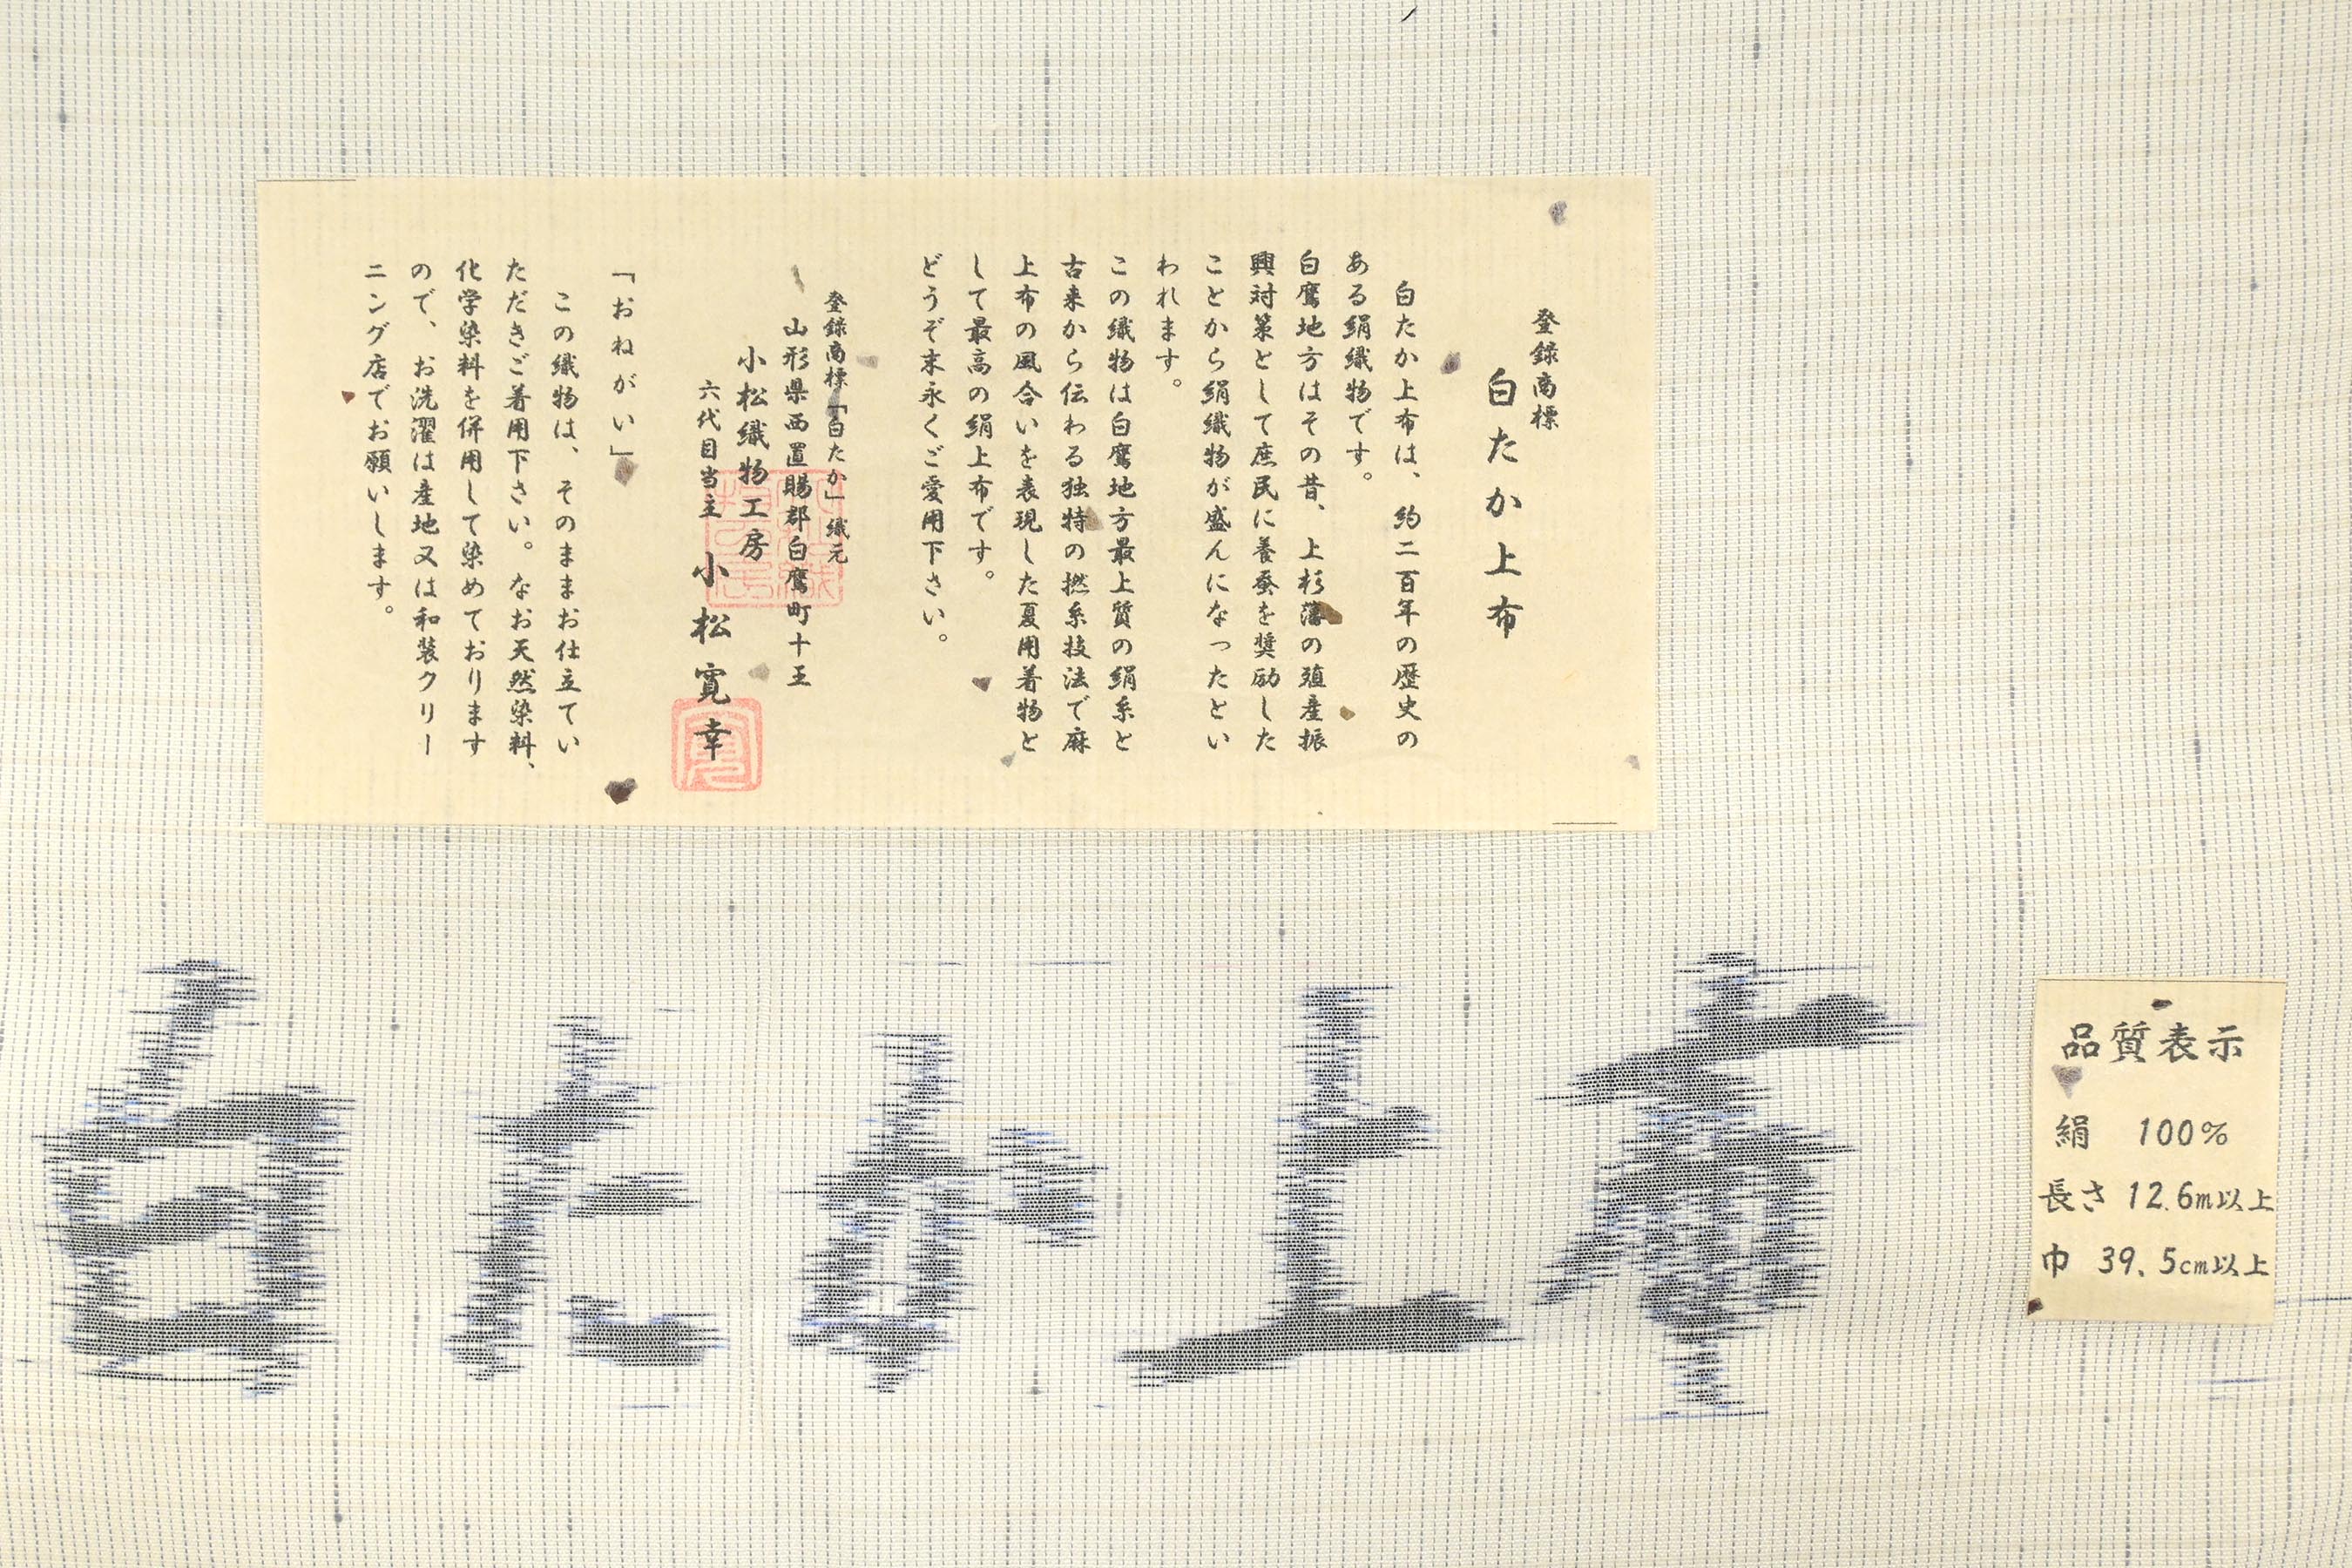 登録商標
白たか上布
白たか上布は、約二百年の歴史の
ある絹織物です。
白鷹地方はその昔、上杉藩の殖産振
興対策として庶民に養蚕を奨励した
ことから絹織物が盛んになったとい
われます。
この織物は白鷹地方最上質の絹糸と
古来から伝わる独特の撚糸技法で麻
上布の風合いを表現した夏用着物と
して最高の絹上布です。
どうぞ末永くご愛用下さい。
登録商標「白たか」織元
山形県西置賜郡白鷹町十王
小松織物工房
六代目当主 小松寛幸
「おねがい」
この織物は、そのままお仕立てい
ただきご着用下さい。なお天然染料、
化学染料を併用して染めております
ので、お洗濯は産地又は和装クリー
ニング店でお願いします。
白たか上布
品質表示
絹 100%
長さ 12.6m以上
巾 39.5cm以上